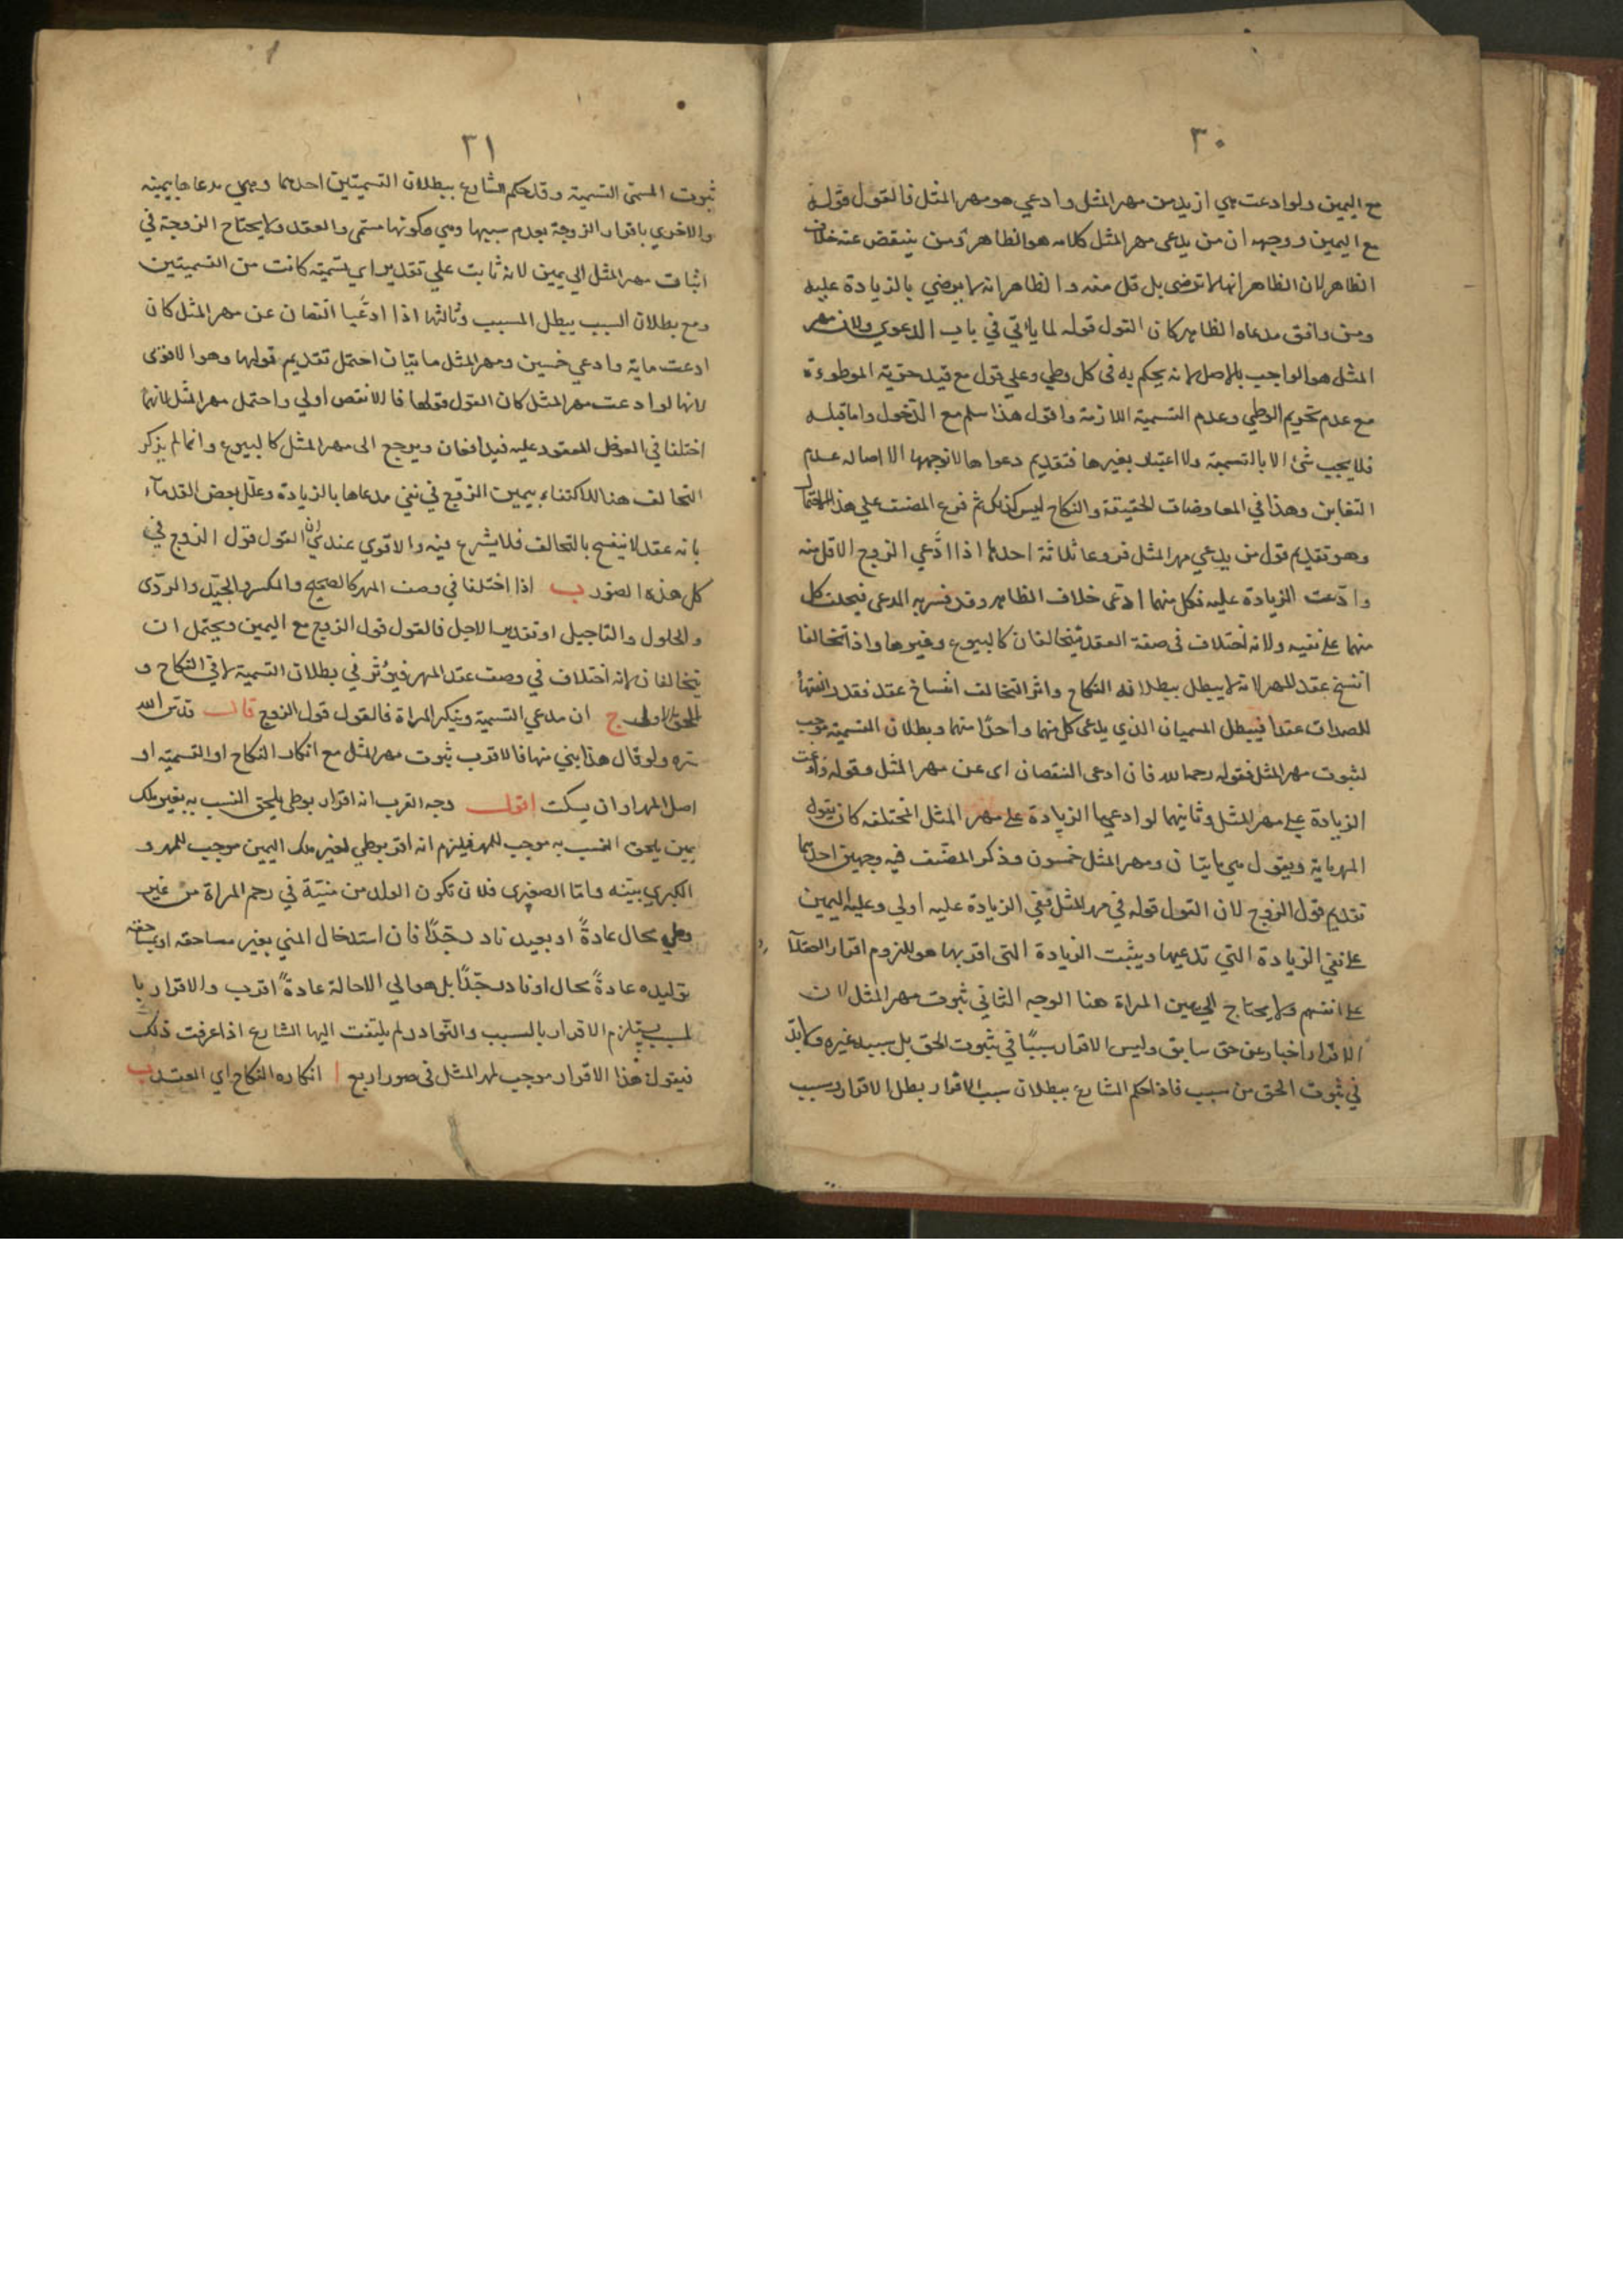 ٣٠
مع اليمين ولو ادعت هي ازيد من مهر المثل وادعي هو مهر المثل فالقول قوله
مع اليمين ووجهه ان من يدعى مهر المثل كلامه هو الظاهر ومن ينقض عنه خلاف
الظاهر لان الظاهر انها لا ترضى بل قل منه والظاهر انه لا يرضي بالزيادة عليه
ومن وافق مدعاه الظاهر كان القول قوله لما ياتي في باب الدعوي ولان مهر
المثل هو الواجب بالاصل لانه يحكم به فى كل وطي وعلي قول مع قيد حقوية الموطوءة
مع عدم تحريم الوطي وعدم التسمية اللازمة واقول هذا سلم مع الدخول واما قبله
فلا يجب شئ الا بالتسمية ولا اعتبار بغيرها فتقديم دعواها لا توجهها الا اصاله عدم
التغابن وهذا في المعاوضات الحقيقة والنكاح ليس كذلك ثم فرع المصنف علي هذا الاحتمال
وهو تقديم قول من يدعي مهر المثل فروعا ثلاثة احدها اذا ادّعي الزوج الاقل منه
وادّعت الزيادة عليه فكل منهما ادّعى خلاف الظاهر وقد فسر به المدعى فيحلف كل
منهما على نفيه ولانه اختلاف فى صفة العقد فيتحالفان كالبيوع وغيرها واذا تحالفا
انفسخ عقد المهر لانه لا يبطل ببطلانه النكاح واثر التحالف انفساخ عقد فقد انتهأ
للصداق عقدا فيبطل المسميان الذي يدعى كل منهما واحدًا منهما وبطلان التسمية موجب
لثبوت مهر المثل فقوله رحمه الله فان ادعى النقصان اى عن مهر المثل وقوله وادعت
الزيادة على مهر المثل وثانيهما لو ادعيا الزيادة على مهر المثل المختلفه كان يقوله
المهر ماية ويقول هي مايتان ومهر المثل خمسون وذكر المصنف فيه وجهين احدهما
تقديم قول الزوج لان القول قوله في مهر المثل ففي الزيادة عليه اولي وعليه اليمين
على نفي الزيادة التي تدعيها ويثبت الزيادة التى اقر بها هو للزوم اقرار العقلآ
على انفسهم ولا يحتاج الي يمين المراة هنا الوجه الثاني ثبوت مهر المثل لان
الاقرار اخبار عن حق سابق وليس الاقرار سببًا في ثبوت الحق بل سببه غيره ولا بدّ
في ثبوت الحق من سبب فاذا حكم الشارع ببطلان سبب الاقرار بطل الاقرار وسبب
٣١
ثبوت المسمى التسمية وقد حكم الشارع ببطلان التسميتين احدهما وهي مدعاها بيمينه
والاخرى باقرار الزوجة بعدم سببها وهي كونها مسمى والعقد ولا يحتاج الزوجة في
اثبات مهر المثل الي يمين لانه ثابت علي تقدير اي تسمية كانت من التسميتين
ومع بطلان السبب يبطل المسبب وثالثها اذا ادعيا النقصان عن مهر المثل كان
ادعت ماية وادعي خمسين ومهر المثل مايتان احتمل تقديم قولها وهو الاقوى
لانها لو ادعت مهر المثل كان القول قولها فالانقص اولي واحتمل مهر المثل لانهما
اختلفا في العوض المعقود عليه فيدافعان ويرجع الى مهر المثل كالبيوع وانما لم يذكر
التحالف هنا للاكتفاء بيمين الزوج في نفي مدعاها بالزيادة وعلّل بعض القدمآء
بانه عقد لا ينفسخ بالتحالف فلا يشرع فيه والاقوي عندي ان القول قول الزوج في
كل هذه الصور ب اذا اختلفا في وصف المهر كالصحيح والمكسر والجيّد والردّى
والحلول والتاجيل او تقدير الاجل فالقول قول الزوج مع اليمين ويحتمل ان
يتحالفا لانه اختلاف في وصف عقد المهر فيؤثر في بطلان التسمية لا في النكاح و
الحق الاولى ج ان مدعي التسمية وينكر المراة فالقول قول الزوج قال قدّس الله
سره ولو قال هذا بني منها فالاقرب ثبوت مهر المثل مع انكار النكاح او التسمية او
اصل المهر او ان يسكت اقول وجه القرب انه اقرار بوطي يلحق النسب به بغير ملك
يمين يلحق النسب به موجب للمهر فيلزم انه اقر بوطي لغير ملك اليمين موجب للمهر و
الكبرى بيّنه وامّا الصغرى فلان تكون الولد من منيّة في رحم المراة من غير
وطي محال عادةً او بعيد نادر جدًّا فان استدخال المني بغير مساحقه او مساحقه
توليده عادةً محال او نادر جدًّا بل هو الي الاحالة عادةً اقرب والاقرار با
لمسبب يستلزم الاقرار بالسبب والنوادر لم يلتفت اليها الشارع اذا عرفت ذلك
فنقول هذا الاقرار موجب لمهر المثل فى صور اربع ا انكاره النكاح اي العقد ب